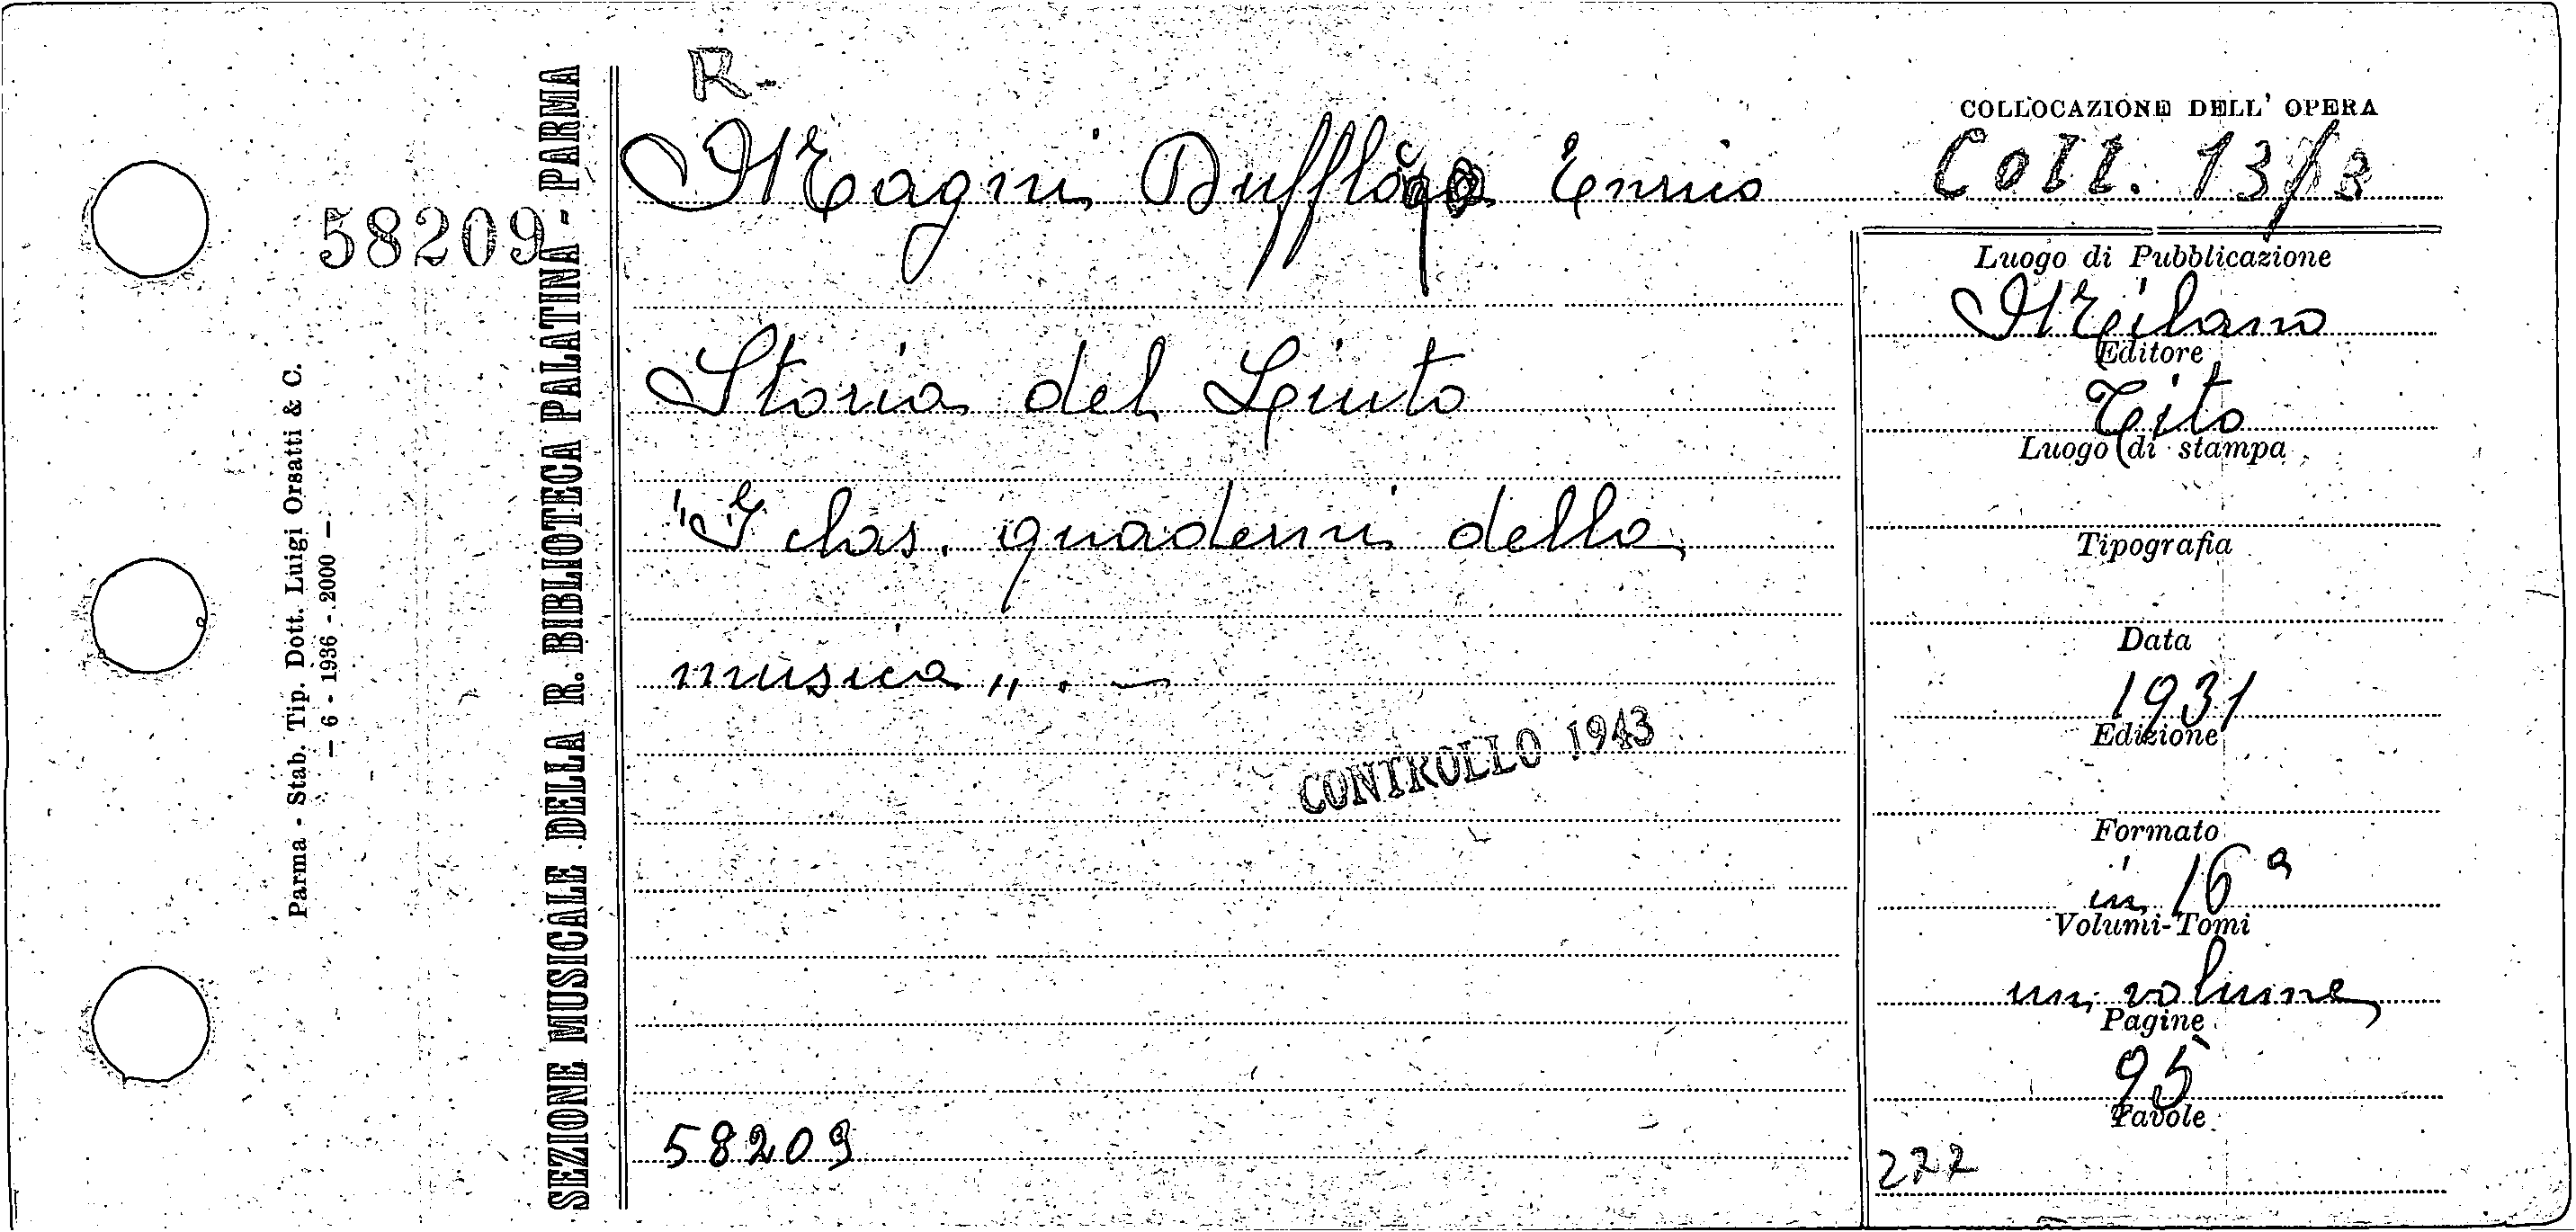 R-
COLLOCAZIONE DELL' OPERA
Magni Dufflocq Enrico
Coll. 13/B
58209
Parma - Stab. Tip. Dott. Luigi Orsatti & C.
— 6 - 1936 - 2000 —
SEZIONE MUSICALE DELLA R. BIBLIOTECA PALATINA - PARMA
Storia del Liuto
" I clas. quaderni della
musica „ . —
CONTROLLO 1943
58209
Luogo di Pubblicazione
Milano
Editore
Tito
Luogo di stampa
Tipografia
Data
1931
Edizione
Formato
in 16°
Volumi-Tomi
un volume
Pagine
95
Tavole
277